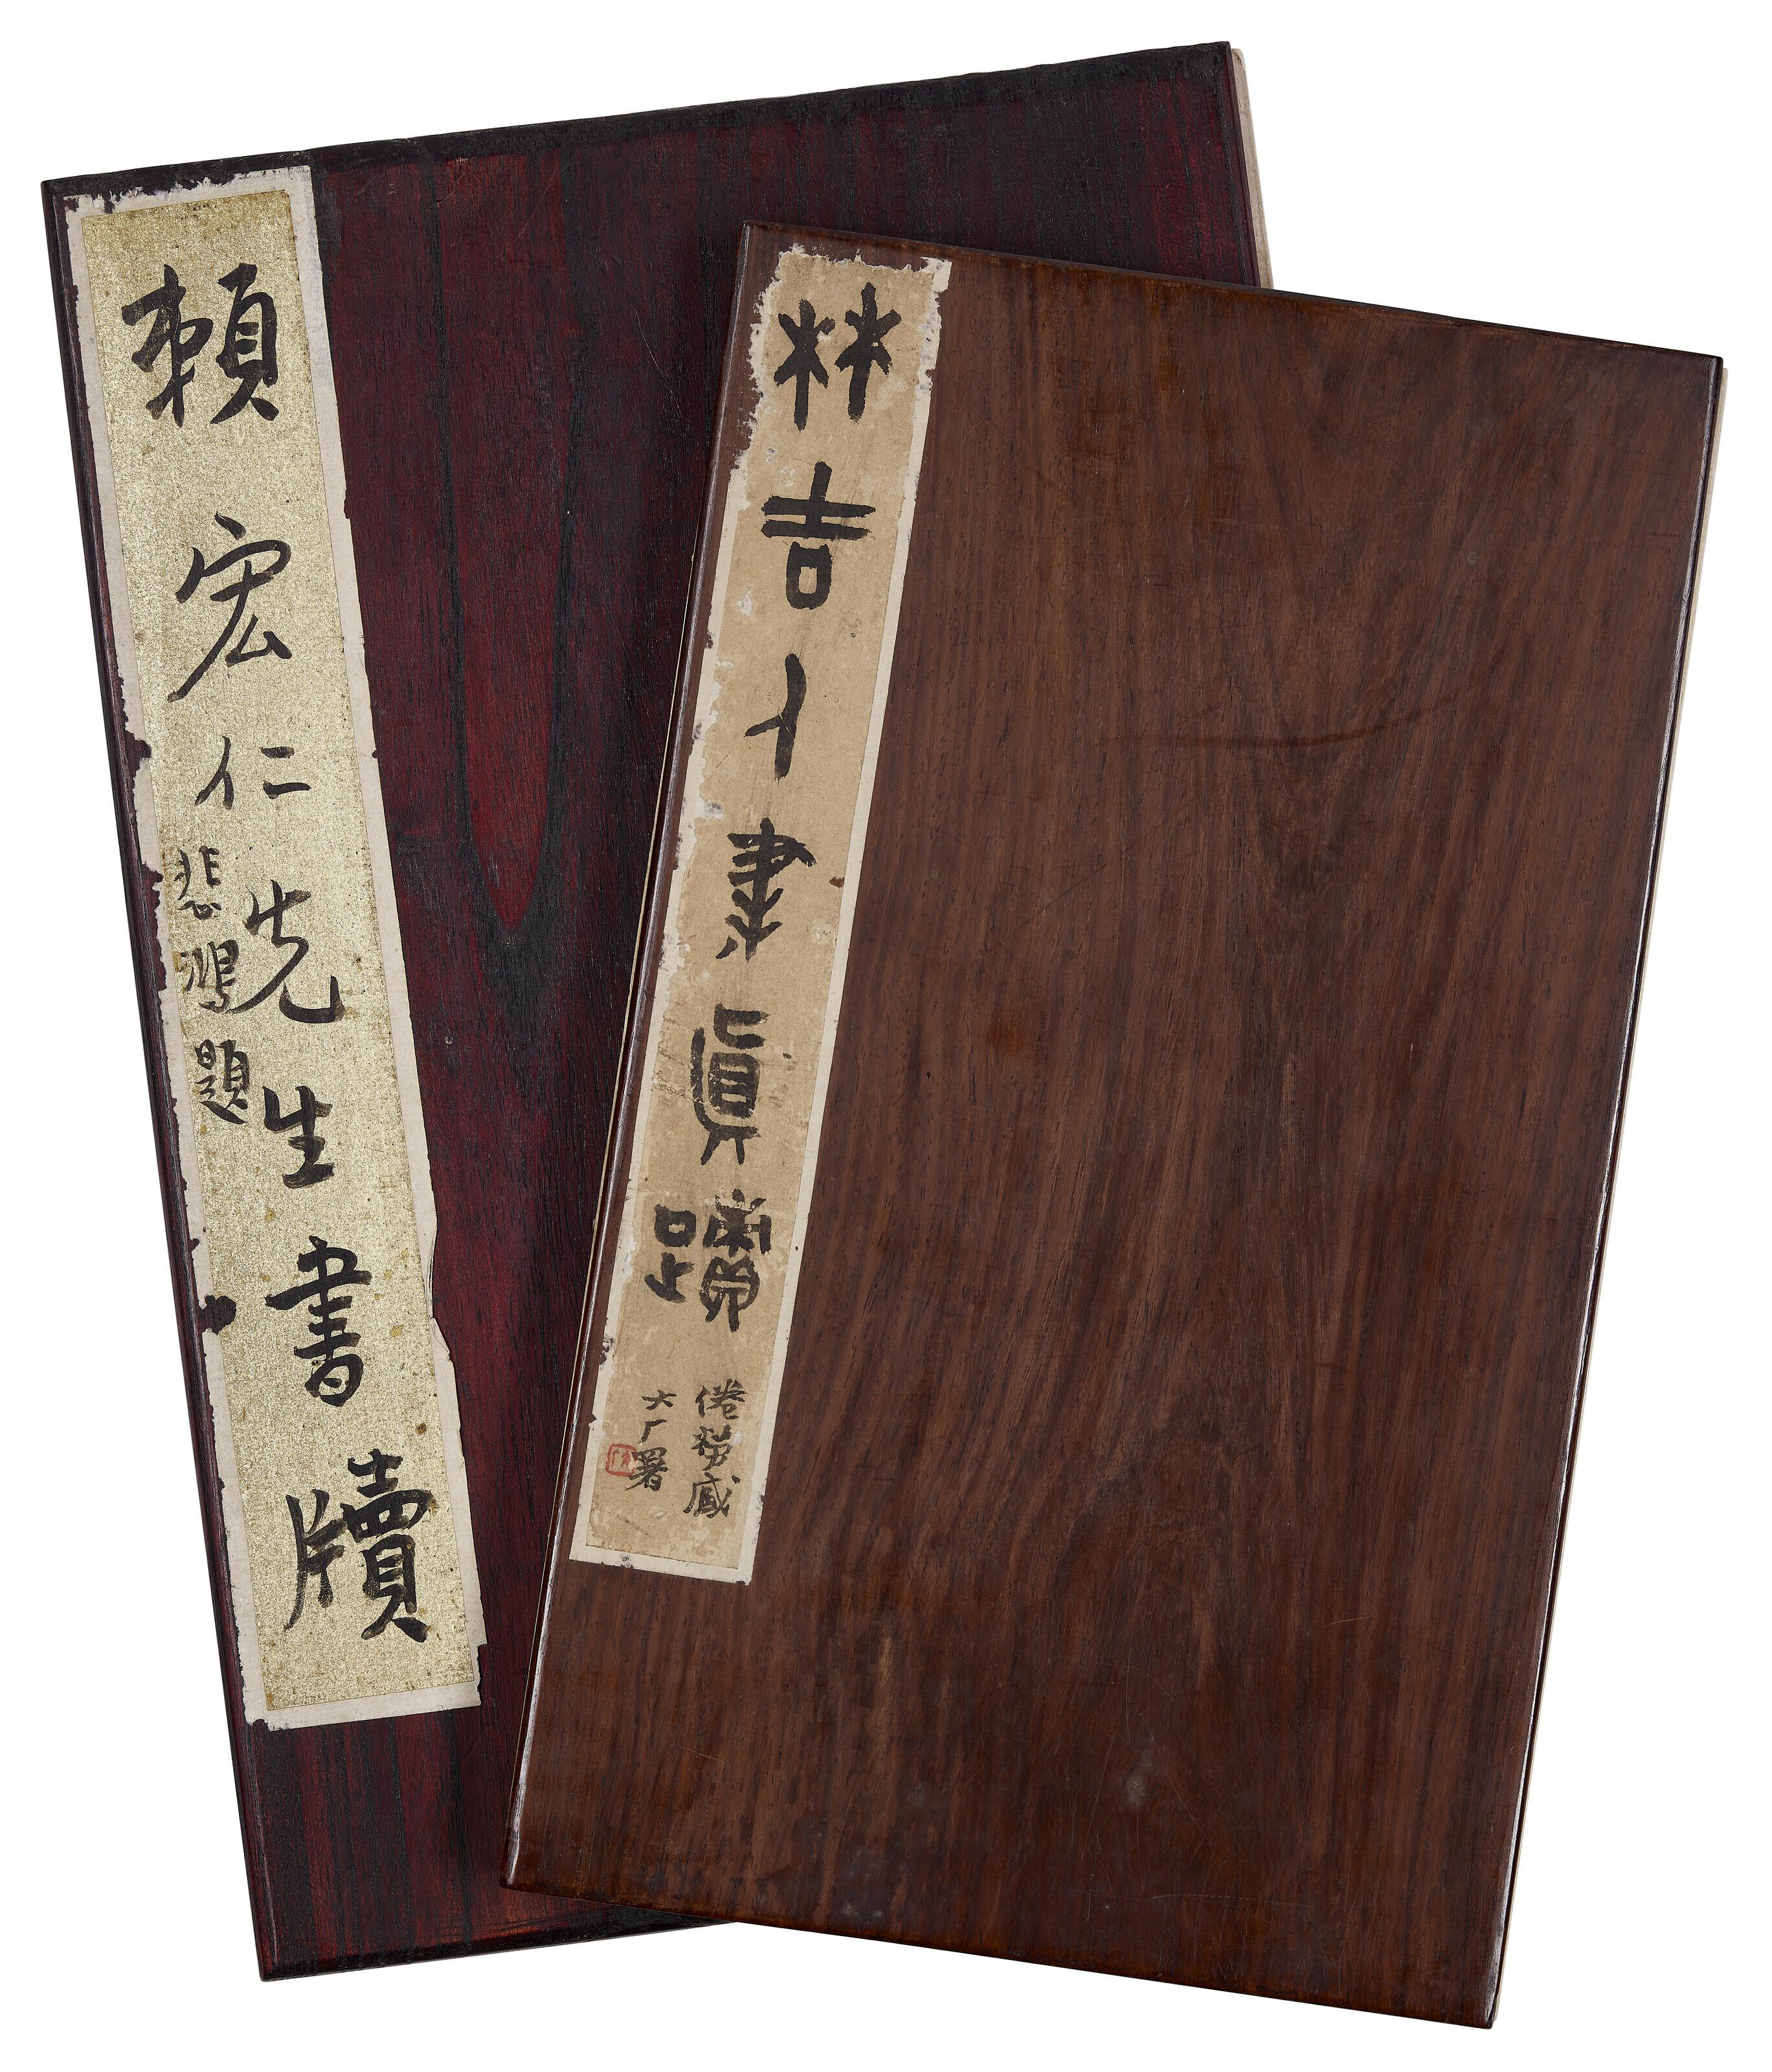 頼宏仁先生書牘
悲鴻題
林吉人隶眞蹟
倦藏
大厂署